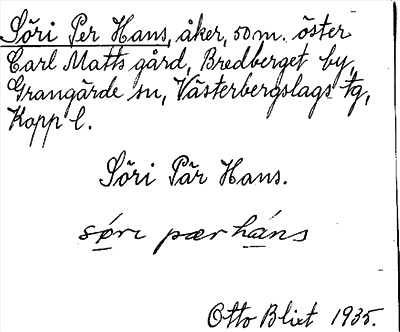 Söri Per Hans, åker, 50 m. öster
Carl Matts gård, Bredberget by,
Grangärde sn, Västerbergslags tg,
Kopp l.
Söri Pär Hans.
sǿri pær háns
Otto Blixt 1935.